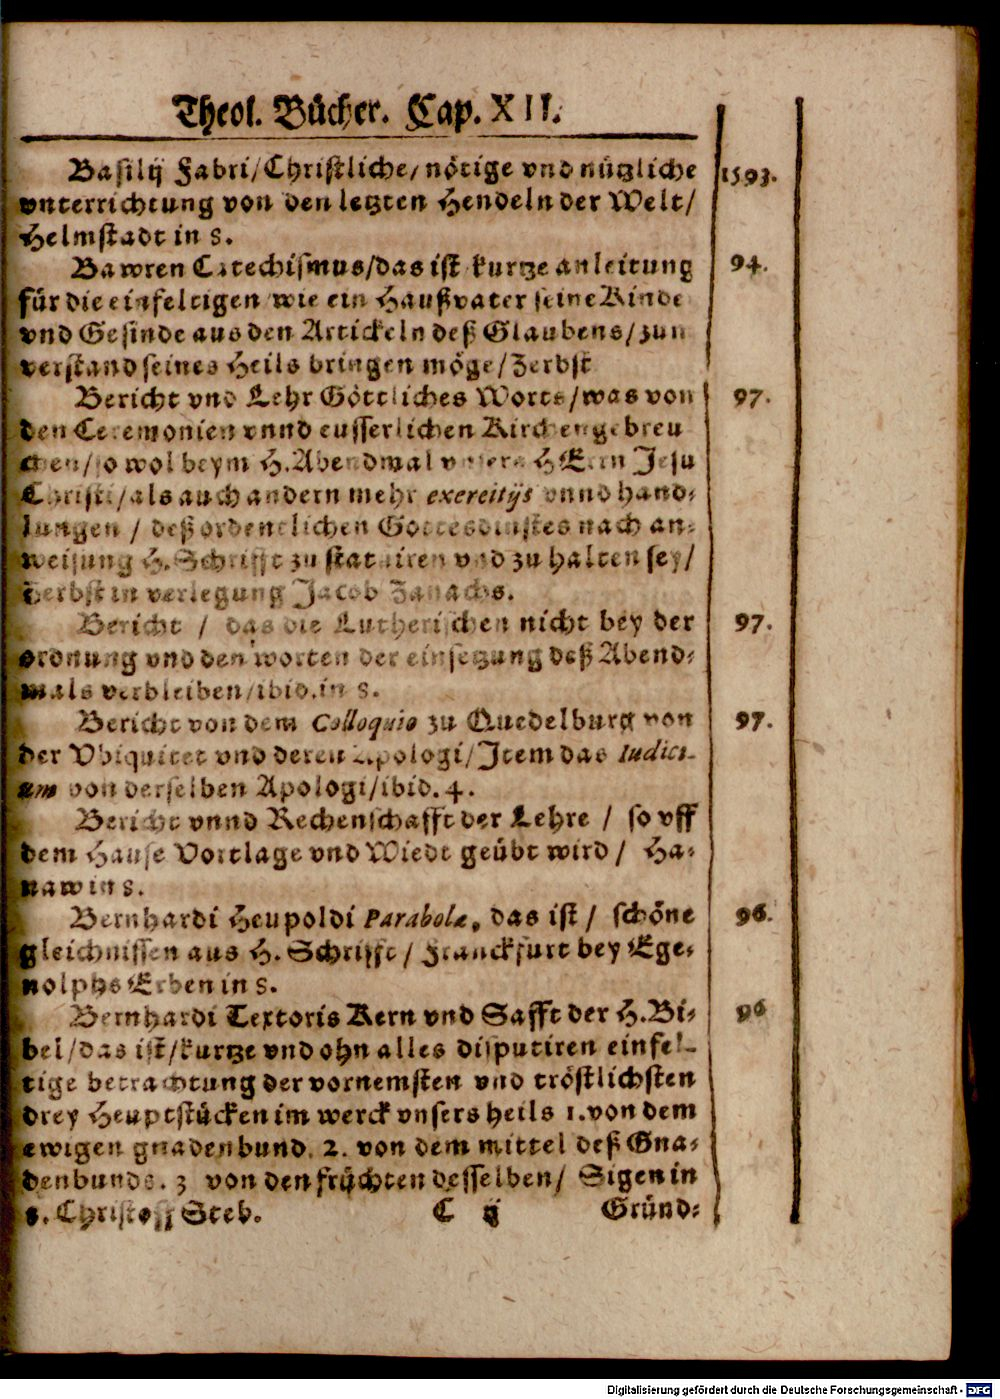 Theol. Bücher. Cap. XII.
Basilij Fabri/Christliche/nötige vnd nützliche 1593.
vnterrichtung von den letzten Hendeln der Welt/
Helmstadt in 8.
Bawren Catechismus/das ist kurtze anleitung 94.
für die einfeltigen wie ein Haußvater seine Kinde
vnd Gesinde aus den Artickeln deß Glaubens/zun
verstand seines Heils bringen möge/Zerbst
Bericht vnd Lehr Göttliches Worts/was von 97.
den Ceremonien vnnd eusserlichen Kirchengebreu
chen/so wol beym H.Abendmal vnsers HErrn Jesu
Christi/als auch andern mehr exereitijs vnnd hand-
lungen / deß ordentlichen Gottesdinstes nach an-
weisung H. Schrifft zu statuiren vnd zu halten sey/
Zerbst in verlegung Jacob Zanachs.
Bericht / das die Lutherischen nicht bey der 97.
ordnung vnd den worten der einsetzung deß Abend-
mals verbleiben/ibid.in 8.
Bericht von dem Colloquio zu Quedelburg von 97.
der Vbiquitet vnd deren Apologi/Item das Iudici-
um von derselben Apologi/ibid. 4.
Bericht vnnd Rechenschafft der Lehre / so vff
dem Hause Vortlage vnd Wiede geübt wird / Ha-
naw in 8.
Bernhardi Heupoldi Parabolæ, das ist / schöne 96.
gleichnissen aus H. Schrifft/ Franckfurt bey Ege-
nolphs Erben in 8.
Bernhardi Textoris Kern vnd Safft der H.Bi- 96
bel/das ist/kurtze vnd ohn alles disputiren einfel-
tige betrachtung der vornemsten vnd tröstlichsten
drey Heuptstücken im werck vnsers heils 1.von dem
ewigen gnadenbund. 2. von dem mittel deß Gna-
denbunds. 3 von den früchten desselben/ Sigen in
8. Christoff Steb.
C ij Gründ-
Digitalisierung gefördert durch die Deutsche Forschungsgemeinschaft - DFG